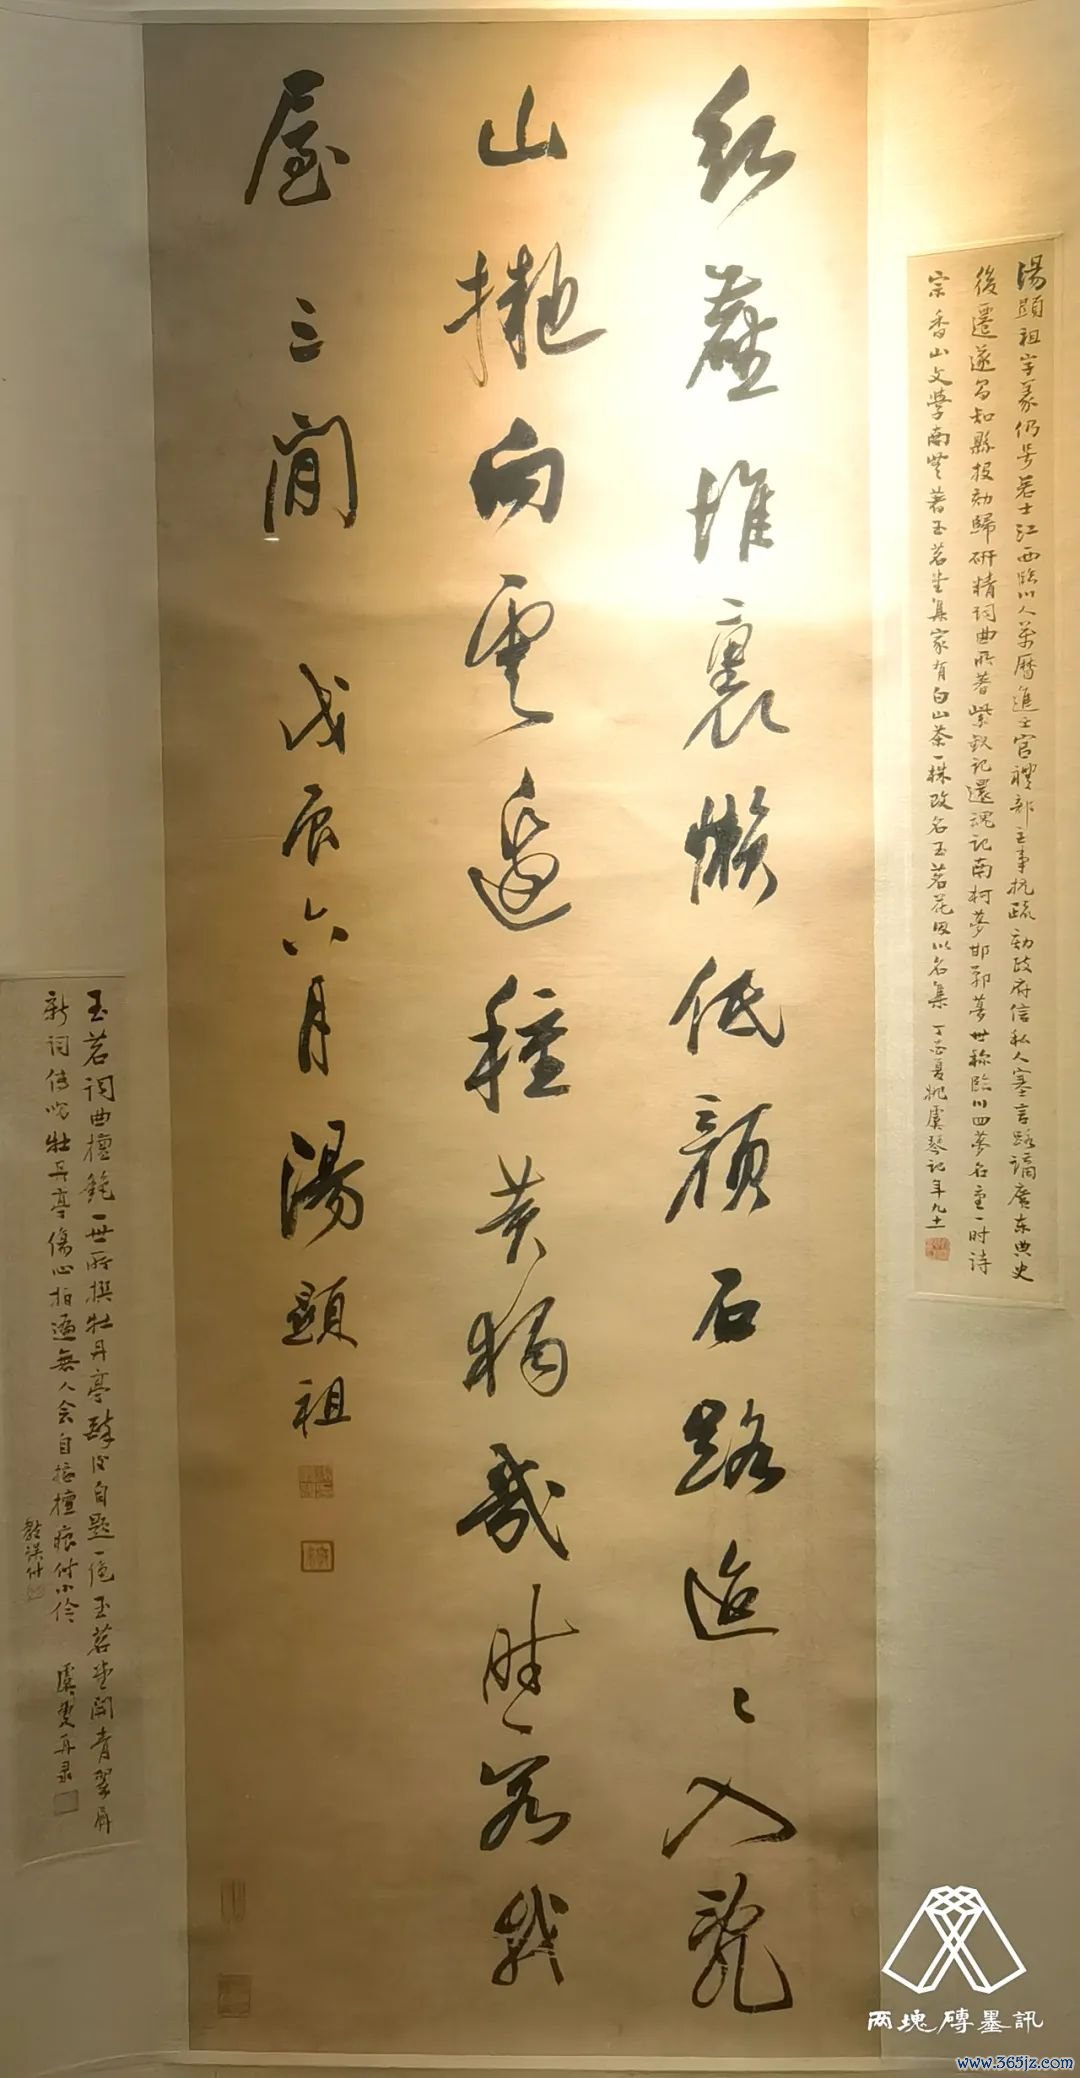 紅塵堆裏懶低顏石路迢々入亂
山拋向雲邊種黃獨幾時容我
屋三間 戊辰六月湯顯祖
湯顯祖字義仍號若士江西臨川人萬曆進士官禮部主事抗疏劾政府信私人塞言路謫廣東典史
後遷遂昌知縣投劾歸研精詞曲所著紫釵記還魂記南柯夢邯鄲夢世称臨川四夢名重一时诗
宗香山文學南豐著玉茗堂集家有白山茶一株改名玉茗花因以名集 丁酉夏姚虞琴記年九十一
玉茗詞曲擅絕一世所撰牡丹亭 自題一絕玉茗堂開青翠屏
新詞傳唱牡丹亭傷心拍遍無人会自掐檀痕付小伶 虞叟再录
两塊磚墨訊
www.365jz.com